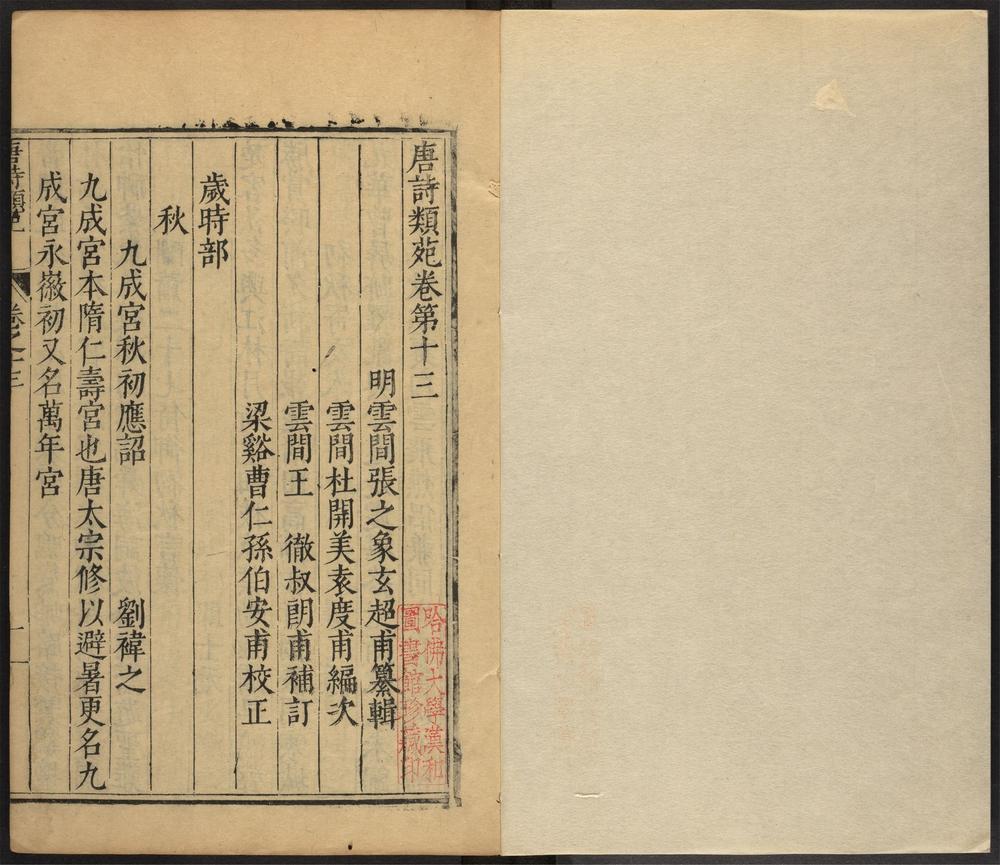 唐詩類苑卷第十三
明雲間張之象玄超甫纂輯
雲間杜開美袁度甫編次
雲間王　徹叔朗甫補訂
梁谿曹仁孫伯安甫校正
歲時部
秋
九成宮秋初應詔　劉禕之
九成宮本隋仁壽宮也唐太宗修以避暑更名九
成宮永徽初又名萬年宮
唐詩類苑　卷之十三　一
哈佛大學漢和
圖書館珍藏印